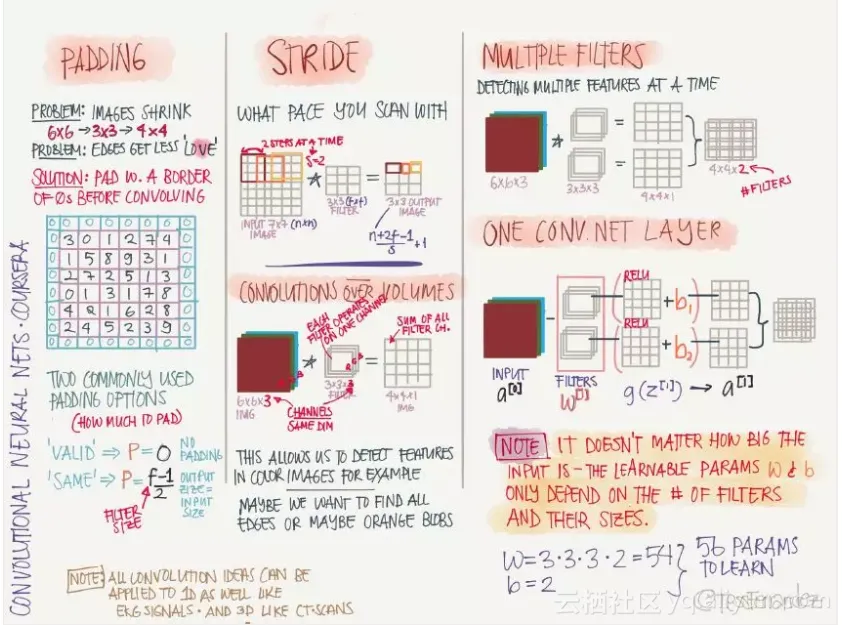 CONVOLUTIONAL NEURAL NETS · COURSERA
PADDING
PROBLEM: IMAGES SHRINK
6x6 → 3x3 → 4x4
PROBLEM: EDGES GET LESS 'LOVE'
SOLUTION: PAD W. A BORDER
OF 0s BEFORE CONVOLVING
0 0 0 0 0 0 0 0
0 3 0 1 2 7 4 0
0 1 5 8 9 3 1 0
0 2 7 2 5 1 3 0
0 0 1 3 1 7 8 0
0 4 2 1 6 2 8 0
0 2 4 5 2 3 9 0
0 0 0 0 0 0 0 0
TWO COMMONLY USED
PADDING OPTIONS
(HOW MUCH TO PAD)
'VALID' ⇒ P=0 NO PADDING
'SAME' ⇒ P=f-1/2 OUTPUT SIZE = INPUT SIZE
FILTER SIZE
NOTE: ALL CONVOLUTION IDEAS CAN BE
APPLIED TO 1D AS WELL LIKE
EKG SIGNALS · AND 3D LIKE CT-SCANS
STRIDE
WHAT PACE YOU SCAN WITH
2 STEPS AT A TIME
S=2
*
=
INPUT 7x7 (n×n)
IMAGE
3x3 (f×f)
FILTER
3x3 OUTPUT
IMAGE
n+2f-1/s +1
CONVOLUTIONS OVER VOLUMES
EACH
FILTER OPERATES
ON ONE CHANNEL
SUM OF ALL
FILTER CH.
*
=
6x6x3
IMG
3x3x3
FILTER
4x4x1
IMG
CHANNELS
SAME DIM
THIS ALLOWS US TO DETECT FEATURES
IN COLOR IMAGES FOR EXAMPLE
MAYBE WE WANT TO FIND ALL
EDGES OR MAYBE ORANGE BLOBS
MULTIPLE FILTERS
DETECTING MULTIPLE FEATURES AT A TIME
*
=
=
6x6x3
3x3x3
4x4x1
4x4x2
# FILTERS
ONE CONV. NET LAYER
RELU
( + b1 )
RELU
( + b2 )
INPUT
a[0]
FILTERS
W[1]
g(z[1]) → a[1]
NOTE IT DOESN'T MATTER HOW BIG THE
INPUT IS - THE LEARNABLE PARAMS W & b
ONLY DEPEND ON THE # OF FILTERS
AND THEIR SIZES.
W=3·3·3·2=54
b=2
56 PARAMS
TO LEARN
云栖社区
@TessFerrandez